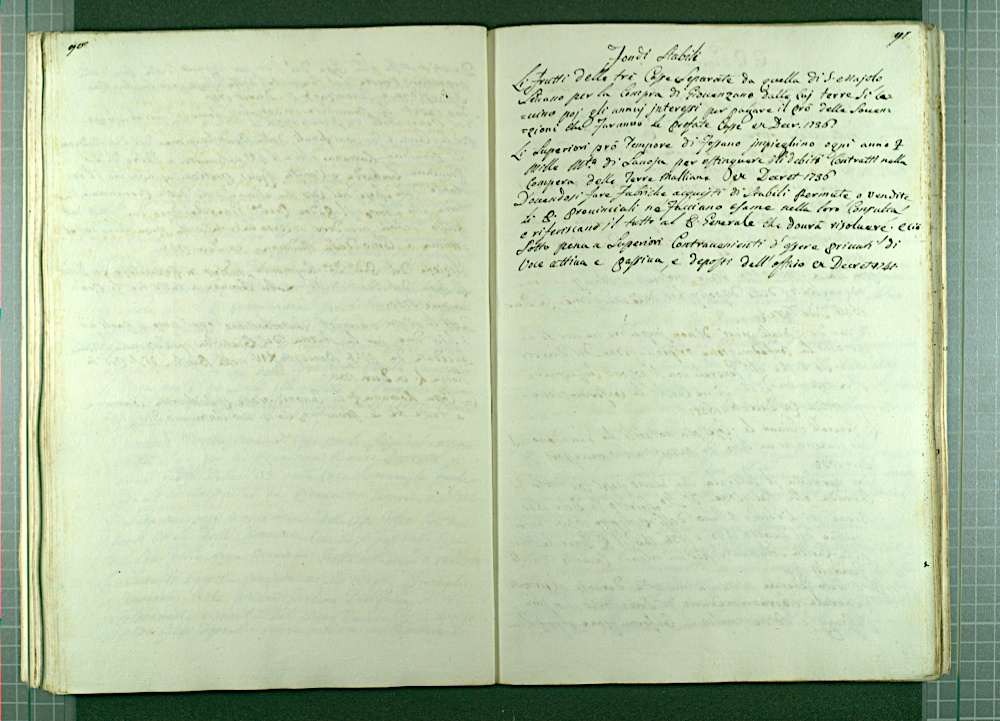 90
91
Fondi Stabili
Li frutti delle tri Case separate da quella di S. Majolo
per la Compra di Giovenzano dalle cuj terre si
poj gli annuj interessi per pagare il prò delle Souen
zioni che faranno le prefate Case ex Decr. 1736
Li Superiori prò tempore di Fossano impieghino ogni anno
Mille di per estinguere ili debiti Contratti nella
Compera delle Terre Malliano Ex Decret 1736
Douendosi fare Fabriche acquisti di Stabili permute o vendite
Li PP. Provinciali ne facciano esame nella loro Consulta
e riferiscano il tutto al P. Generale che dourà risoluere. e ciò
Sotto pena a Superiori Contrauenienti d'essere priuati di
Voce attiua e passiua, e deposti dell'offitio ex Decret 1741